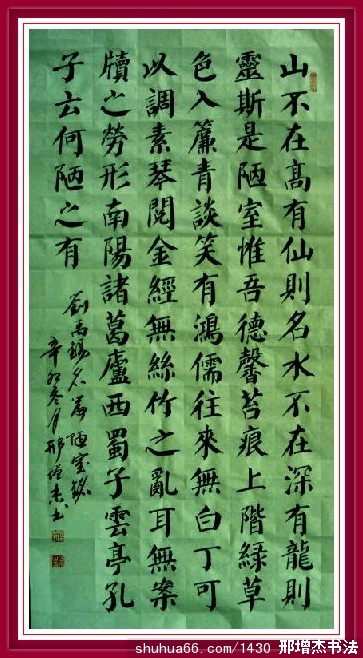 山不在髙有仙則名水不在深有龍則
靈斯是陋室惟吾德馨苔痕上階緑草
色入簾青談笑有鴻儒往來無白丁可
以調素琴閱金經無絲竹之亂耳無案
牘之勞形南陽諸葛廬西蜀子雲亭孔
子云何陋之有
劉禹錫名篇陋室銘
辛卯冬月邢增杰书
shuhua66.com/1430 邢增杰书法